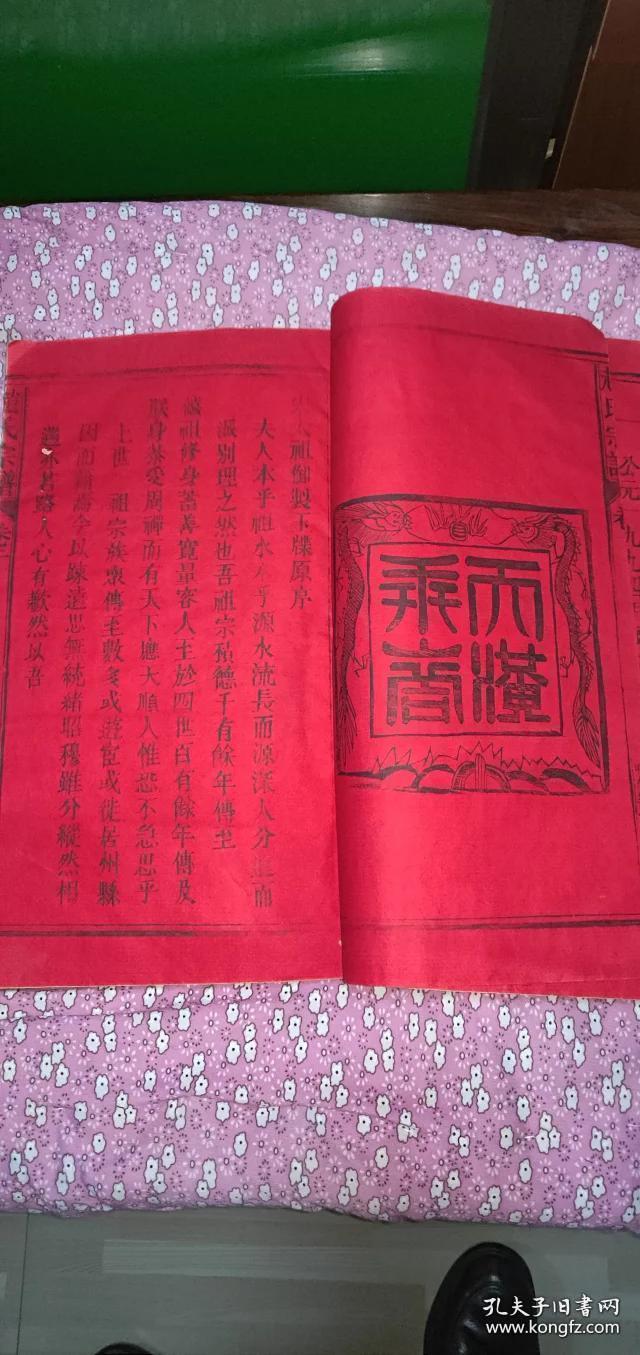 氏宗譜
公元
天潢
乘裔
太祖御製玉牒原序
夫人本乎祖水本乎源水流長而源深人分 而
派別理之然也吾祖宗積德千有餘年傳至
祖修身蓄善寬量容人主於四世百有餘年傳及
朕身荼受周禪而有天下應天順人惟恐不急思乎
上世 祖宗族裔傳至數多或遊宦或徙居州縣
因而 今以疎遠思無統緒昭穆雖分縱然相
遇亦若路人心有歉然以吾
氏宗譜
卷二
孔夫子旧书网
www.kongfz.com